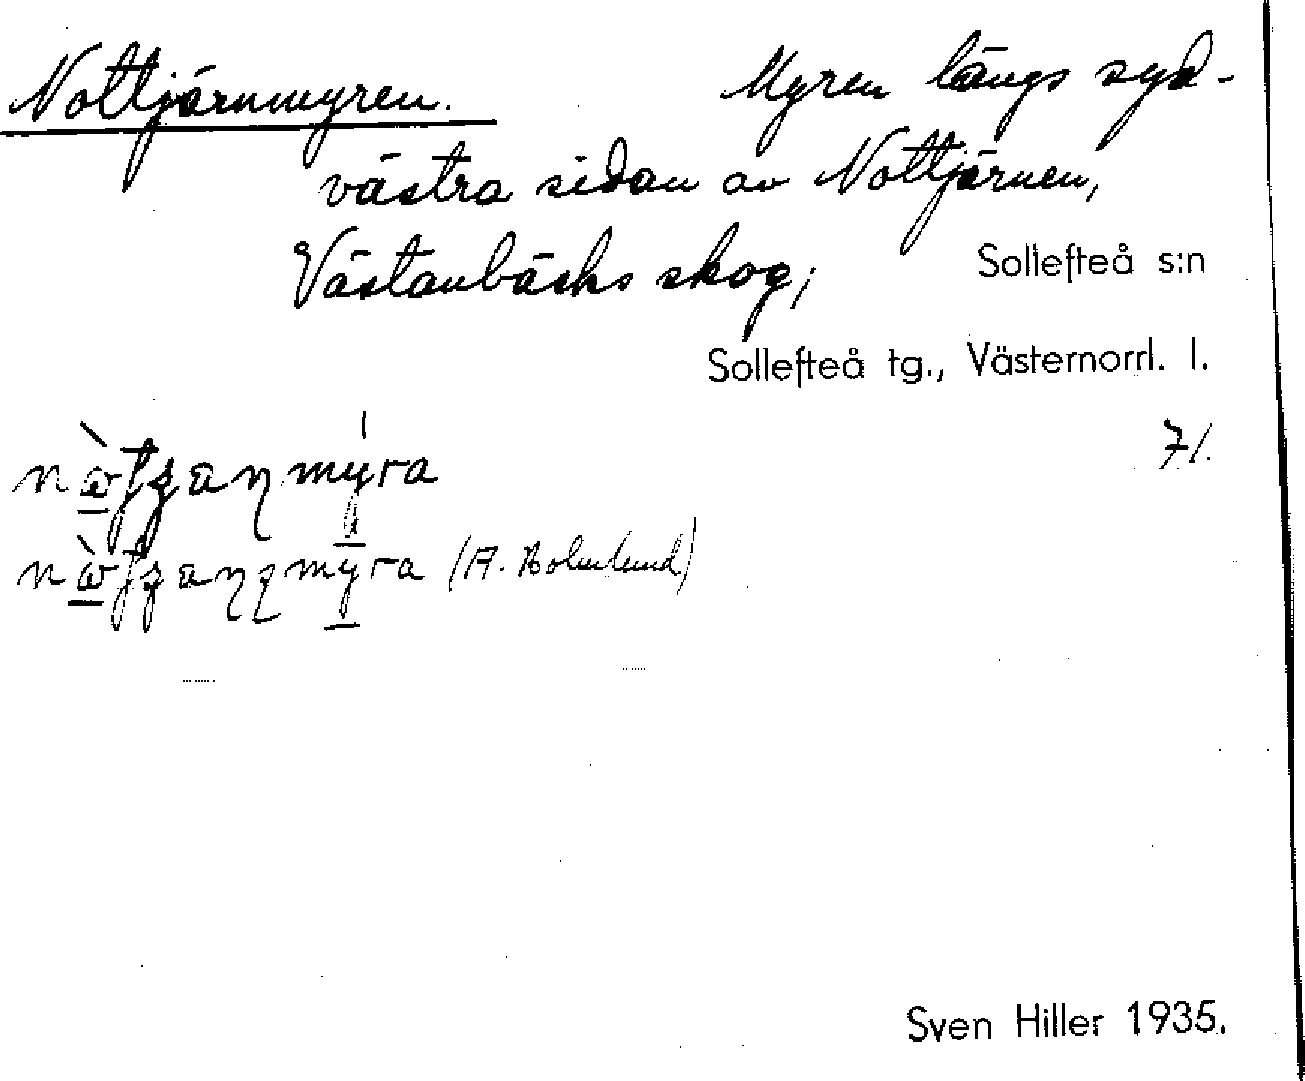 Nottjärnmyren. Myren längs syd-
västra sidan av Nottjärnen,
Västanbäcks skog;
Sollefteå s:n
Sollefteå tg., Västernorrl. l.
71.
(A. Holmlund)
Sven Hiller 1935.